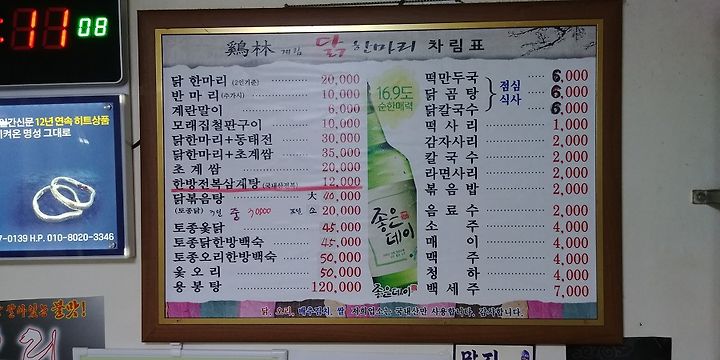 :11 08
일간신문 12년 연속 히트상품
지켜온 명성 그대로
7-0139 H.P. 010-8020-3346
鷄林 계림 닭 한마리 차림표
닭 한마리 (2인기준) 20,000
반 마리 (추가시) 10,000
계란말이 6,000
모래집철판구이 10,000
닭한마리+동태전 30,000
닭한마리+초계쌈 35,000
초 계 쌈 20,000
한방전복삼계탕 (국내산전복) 12,000
닭볶음탕 大 40,000
(토종닭) 中 30000 소 20,000
토종옻닭 45,000
토종닭한방백숙 45,000
토종오리한방백숙 50,000
옻 오 리 50,000
용 봉 탕 120,000
16.9도
순한매력
좋은
데이
좋은데이
떡만두국 6,000
닭 곰 탕 6,000
닭칼국수 6,000
점심
식사
떡 사 리 1,000
감자사리 2,000
칼 국 수 2,000
라면사리 2,000
볶 음 밥 2,000
음 료 수 2,000
소 주 4,000
매 이 4,000
맥 주 4,000
청 하 4,000
백 세 주 7,000
닭, 오리, 배추김치, 쌀 저희업소는 국내산만 사용합니다. 감사합니다.
불맛!
리
맛집